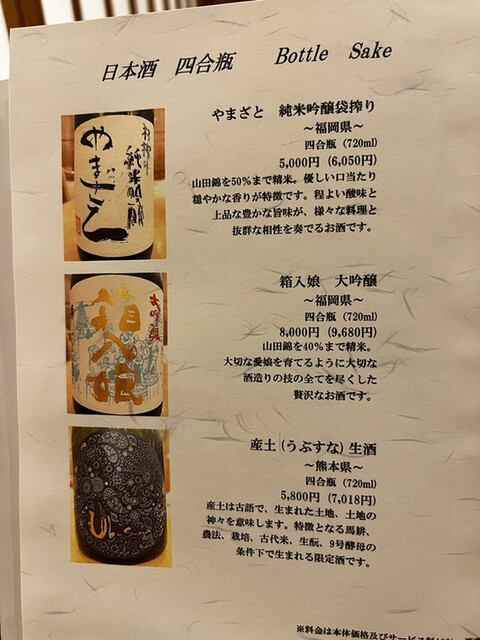 日本酒 四合瓶 Bottle Sake
やまざと 純米吟醸袋搾り
~福岡県~
四合瓶 (720ml)
5,000円 (6,050円)
山田錦を50%まで精米。優しい口当たり
穏やかな香りが特徴です。程よい酸味と
上品な豊かな旨味が、様々な料理と
抜群な相性を奏でるお酒です。
やまさと
純米吟醸
箱入娘 大吟醸
~福岡県~
四合瓶 (720ml)
8,000円 (9,680円)
山田錦を40%まで精米。
大切な愛娘を育てるように大切な
酒造りの技の全てを尽くした
贅沢なお酒です。
大吟醸
箱入娘
産土 (うぶすな) 生酒
~熊本県~
四合瓶 (720ml)
5,800円 (7,018円)
産土は古語で、生まれた土地、土地の
神々を意味します。特徴となる馬耕、
農法、栽培、古代米、生酛、9号酵母の
条件下で生まれる限定酒です。
※料金は本体価格及びサービス料10%